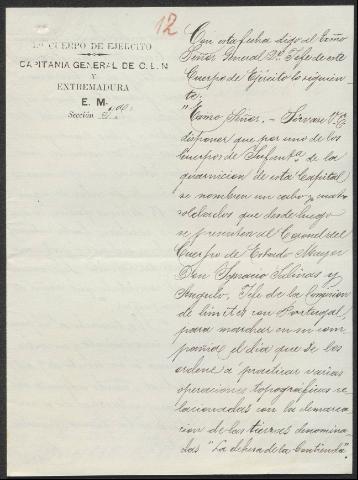 12
1er CUERPO DE EJERCITO
CAPITANIA GENERAL DE C. L. N
Y
EXTREMADURA
E. M.
Sección 2ª
Con esta fecha digo al Excmo
Señor General 2º Jefe de este
Cuerpo de Ejército lo siguien
te:
"Excmo Señor. - Sírvase V. E.
disponer que por uno de los
Cuerpos de Infantª de la
guarnicion de esta Capital
se nombren un cabo y cuatro
soldados que desde luego
se presenten al Coronel del
Cuerpo de Estado Mayor
Don Ignacio Salinas y
Angulo, Jefe de la Comision
de limites con Portugal,
para marchar en su com
pañia el dia que se les
ordene a practicar varias
operaciones topográficas re
lacionadas con la demarca
cion de las tierras denomina
das "La dehesa de la Contienda".